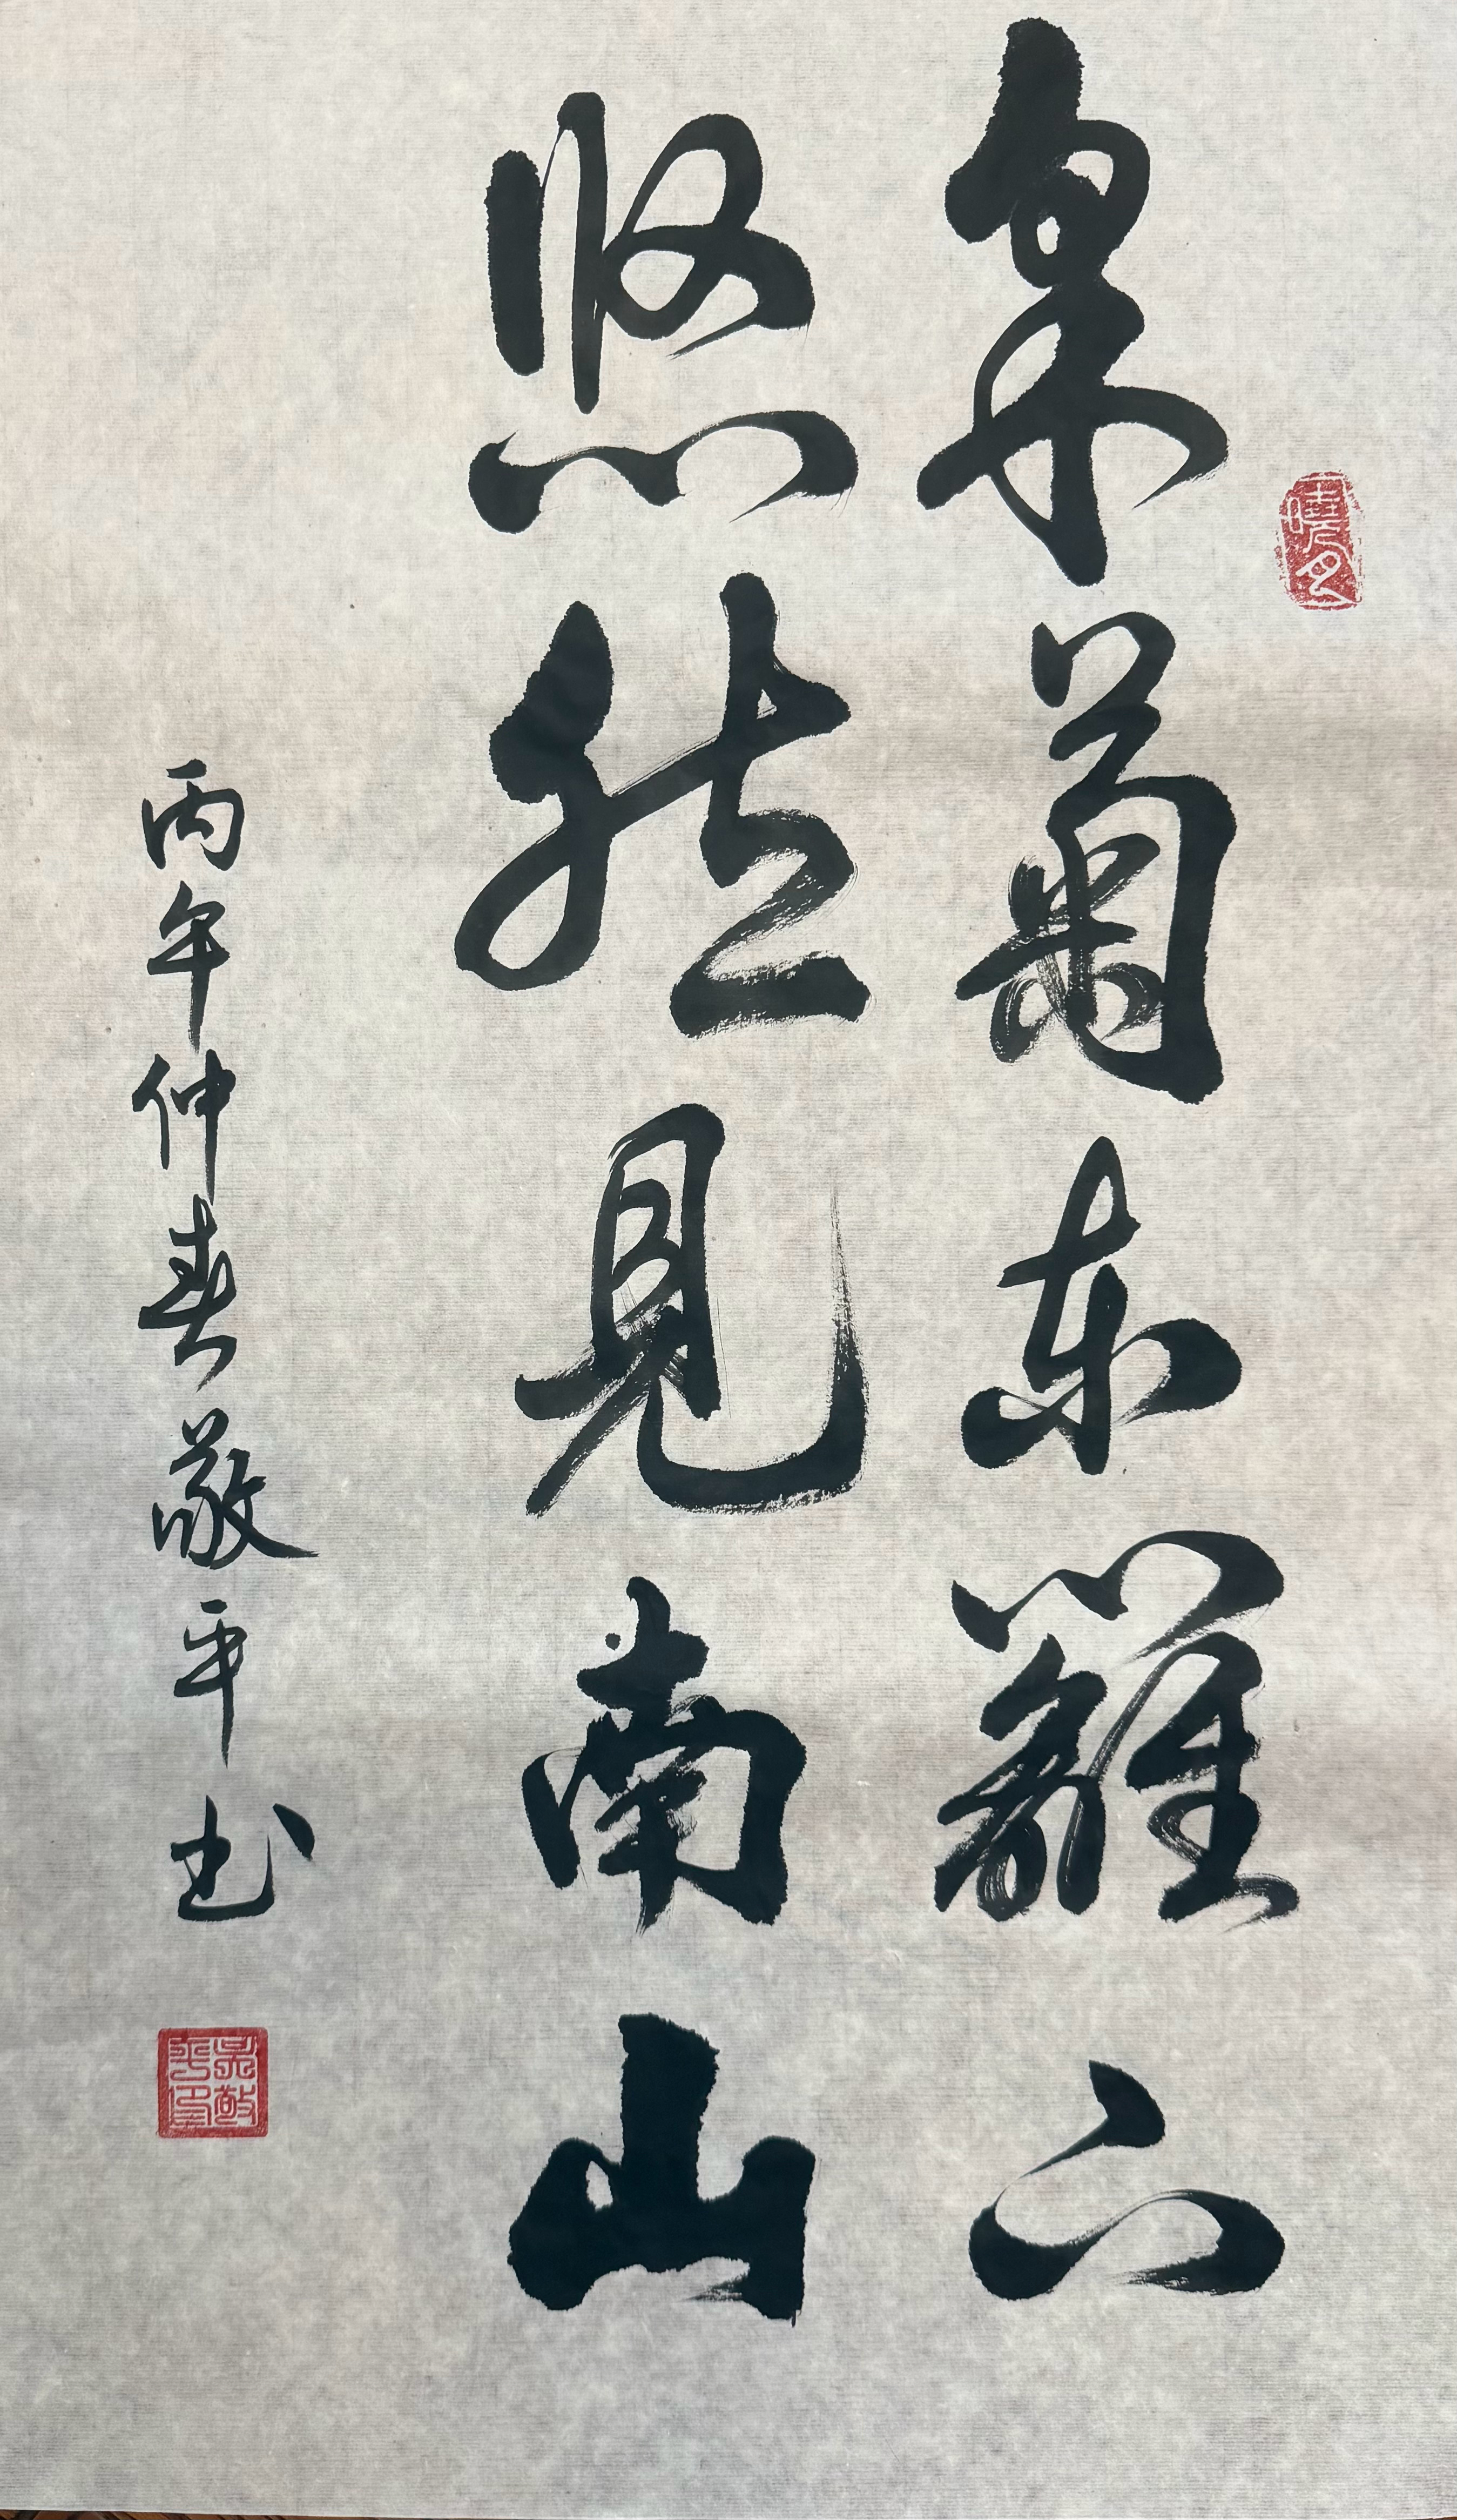 采菊东籬下
悠然見南山
丙午仲春敬平书
吴敬平印